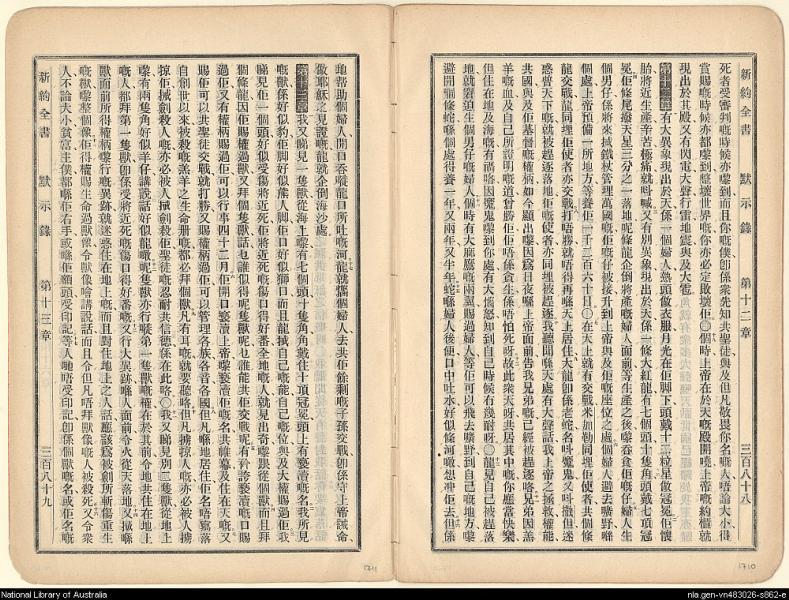 新約全書 默示錄 第十二章 三百八十八
死者受審判嘅時候亦嚟到而且你嘅僕即係衆先知共聖徒與及但凡敬畏你名嘅人唔論大小得
賞賜嘅時候亦都嚟到整壞世界嘅你亦必定敗壞佢〇個時上帝在於天嘅殿開曉上帝嘅約櫃就
現出於其殿又有閃電大聲行雷地震與及大雹
有大異象現出於天係一個婦人熱頭做衣服月光在佢脚下頭戴十二粒星做冠冕佢懷
胎將近生產辛苦極痛就呌喊又有別異象現出於天係一條大紅龍有七個頭十隻角頭戴七頂冠
冕佢條尾撥天星三分之一落地呢條龍企倒將產嘅婦人面前等生產之後嚟吞食佢嘅仔婦人生
個男仔係將來揸鐵杖管理萬國嘅佢嘅仔被接升到上帝與及佢嘅座位之處個婦人走去曠野喺
個處上帝預備一所地方等養佢一千二百六十日〇在天上就有交戰米加勒同埋佢使者共個條
龍交戰龍同埋佢使者亦交戰打唔勝就唔得再喺天上居住大龍即係老蛇名呌魔鬼又呌撒但迷
惑曾天下嘅就被趕逐落地佢嘅使者亦同埋被趕逐我聽聞喺天處有大聲話我上帝之拯救權能
共國與及佢基督嘅權柄如今顯出嚟因爲日夜喺上帝面前告我兄弟嘅已經被趕逐咯兄弟因羔
羊嘅血及自己所證明嘅道曾勝佢佢唔係貪生係唔怕死呀故此衆天呀共居其中嘅你應當快樂
但住在地及海嘅有禍咯因魔鬼嚟到你處有大惱怒知到自己時候有幾耐呀〇龍見自己被趕落
地就窘迫生個男仔嘅婦人個時有大鷹嘅兩翼賜過婦人等佢可以飛去曠野到自己地方嚟
避開個條蛇喺個處得養一年又兩年又半年蛇喺婦人後便口中吐水好似條河嘅想冲佢去但係
新約全書 默示錄 第十三章 三百八十九
地幫助個婦人開口吞嘥龍口所吐嘅河龍就惱個婦人去共佢餘剩嘅子孫交戰即係守上帝誡命
做耶穌之見證嘅龍就企倒海沙處
我又睇見一隻獸從海上嚟有七個頭十隻角角戴住十頂冠冕頭上有褻瀆嘅名我所見
嘅獸係好似豹佢脚好似熊人脚佢口好似獅口而且龍𢬿自己嘅能自己嘅位與及大權賜過佢我
睇見佢一個頭好似受傷將近死佢將近死嘅傷口得好番全地嘅人就見出奇嚟跟從個獸而且拜
個條龍因佢賜權過獸又拜個隻獸話乜誰似得呢隻獸呢乜誰能共佢交戰呢有矜誇褻瀆嘅口賜
過佢又有權柄賜過佢可以行事四十二月佢開口褻瀆上帝褻瀆佢嘅名共帷幕及住在天嘅又
賜佢可以共聖徒交戰就打勝又賜權柄過佢可以管理各族各音各國但凡喺地居住佢名唔寫落
自創世以來被殺嘅羔羊之生命册嘅都必拜個獸凡有耳嘅就要聽咯但凡擄掠人嘅亦必被人擄
掠佢𢬿劍殺人嘅亦必被人𢬿劍殺佢聖徒嘅忍耐共信德係在此咯〇我又睇見別一隻獸從地上
嚟有兩隻角好似羊仔講說話好似龍噉呢隻獸亦行嘥第一隻獸嘅權在於其前令地共住在地上
嘅人都拜第一隻獸即係受將近死嘅傷口得好番嘅又行大異跡喺人面前令火從天落地又𢬿喺
獸面前所得權柄嚟行嘅異跡就迷惑住在地上嘅而且對住地上之人話應該爲被劍所斬傷重生
嘅獸嚟整個像佢得權賜生命過獸像令獸像噲講說話而且令但凡唔拜獸像嘅人被殺死又令衆
人不論大小貧富主僕都喺佢右手或喺佢額頭受印記等人哋唔受印記即係個獸嘅名或佢名嘅
1711
1710
National Library of Australia
nla.gen-vn483026-s862-e